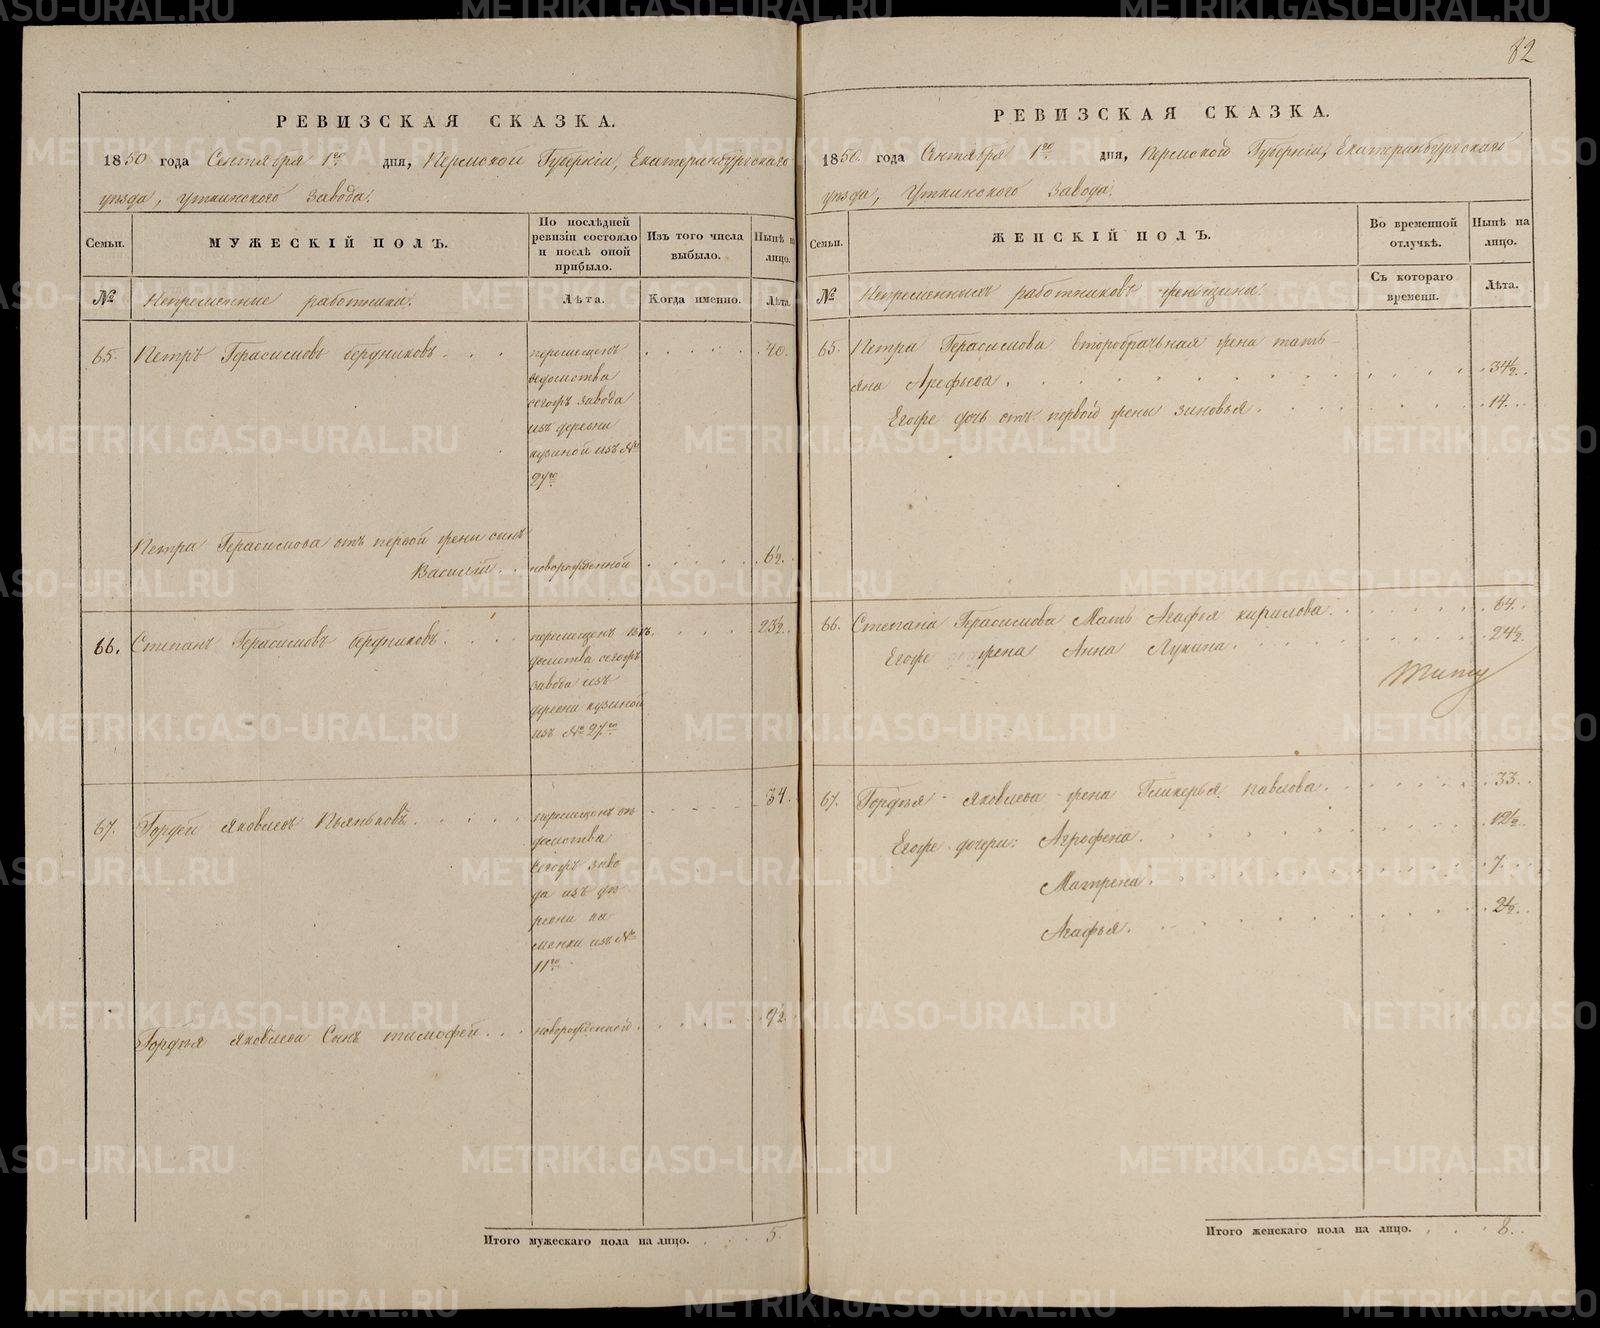 82
РЕВИЗСКАЯ СКАЗКА.
1850 года Сентября 1го дня, Пермской Губерніи, Екатеринбургскаго
уезда, Уткинского завода.
Семьи.
МУЖЕСКІЙ ПОЛЪ.
По послѣдней ревизіи состояло и послѣ оной прибыло.
Изъ того числа выбыло.
Нынѣ на лицо.
№
Непременные работники.
Лѣта.
Когда именно.
Лѣта.
65. Петръ Герасимовъ бердниковъ 40.
перемещенъ
ведомства
сегожъ завода
изъ деревни
кузиной изъ №
27го
Петра Герасимова отъ первой жены сынъ
Василій новорожденной 6½.
66. Степанъ Герасимовъ бердниковъ 23½.
перемещен ведомства сегожъ
завода изъ
деревни кузиной
изъ № 27го
67. Гордей Яковлевъ Пьянковъ 34.
домства
сегожъ заво
да изъ де
ревни ка
менки изъ №
11го
Гордея Яковлева Сынъ тимофей новорожденной 9½.
Итого мужескаго пола на лицо. 5.
РЕВИЗСКАЯ СКАЗКА.
1850. года Сентября 1го дня, Пермской Губерніи, Екатеринбургскаго
уезда, Уткинского завода.
Семьи.
ЖЕНСКІЙ ПОЛЪ.
Во временной отлучкѣ.
Нынѣ на лицо.
№
Непременныхъ работниковъ женщины
Съ котораго времени.
Лѣта.
65. Петра Герасимова второбрачная жена тать-
яна Арефьева. 34½.
Егоже дочь отъ первой жены зиновья. 14.
66. Степана Герасимова Мать Агафья кирилова. 64.
Егоже жена Анна Лукина. 24½.
67. Гордея Яковлева жена Гликерья павлова. 33.
Егоже дочери: Агрофена. 12½.
Матрена. 7.
Агафья. 2½.
Итого женскаго пола на лицо. 8.
METRIKI.GASO-URAL.RU